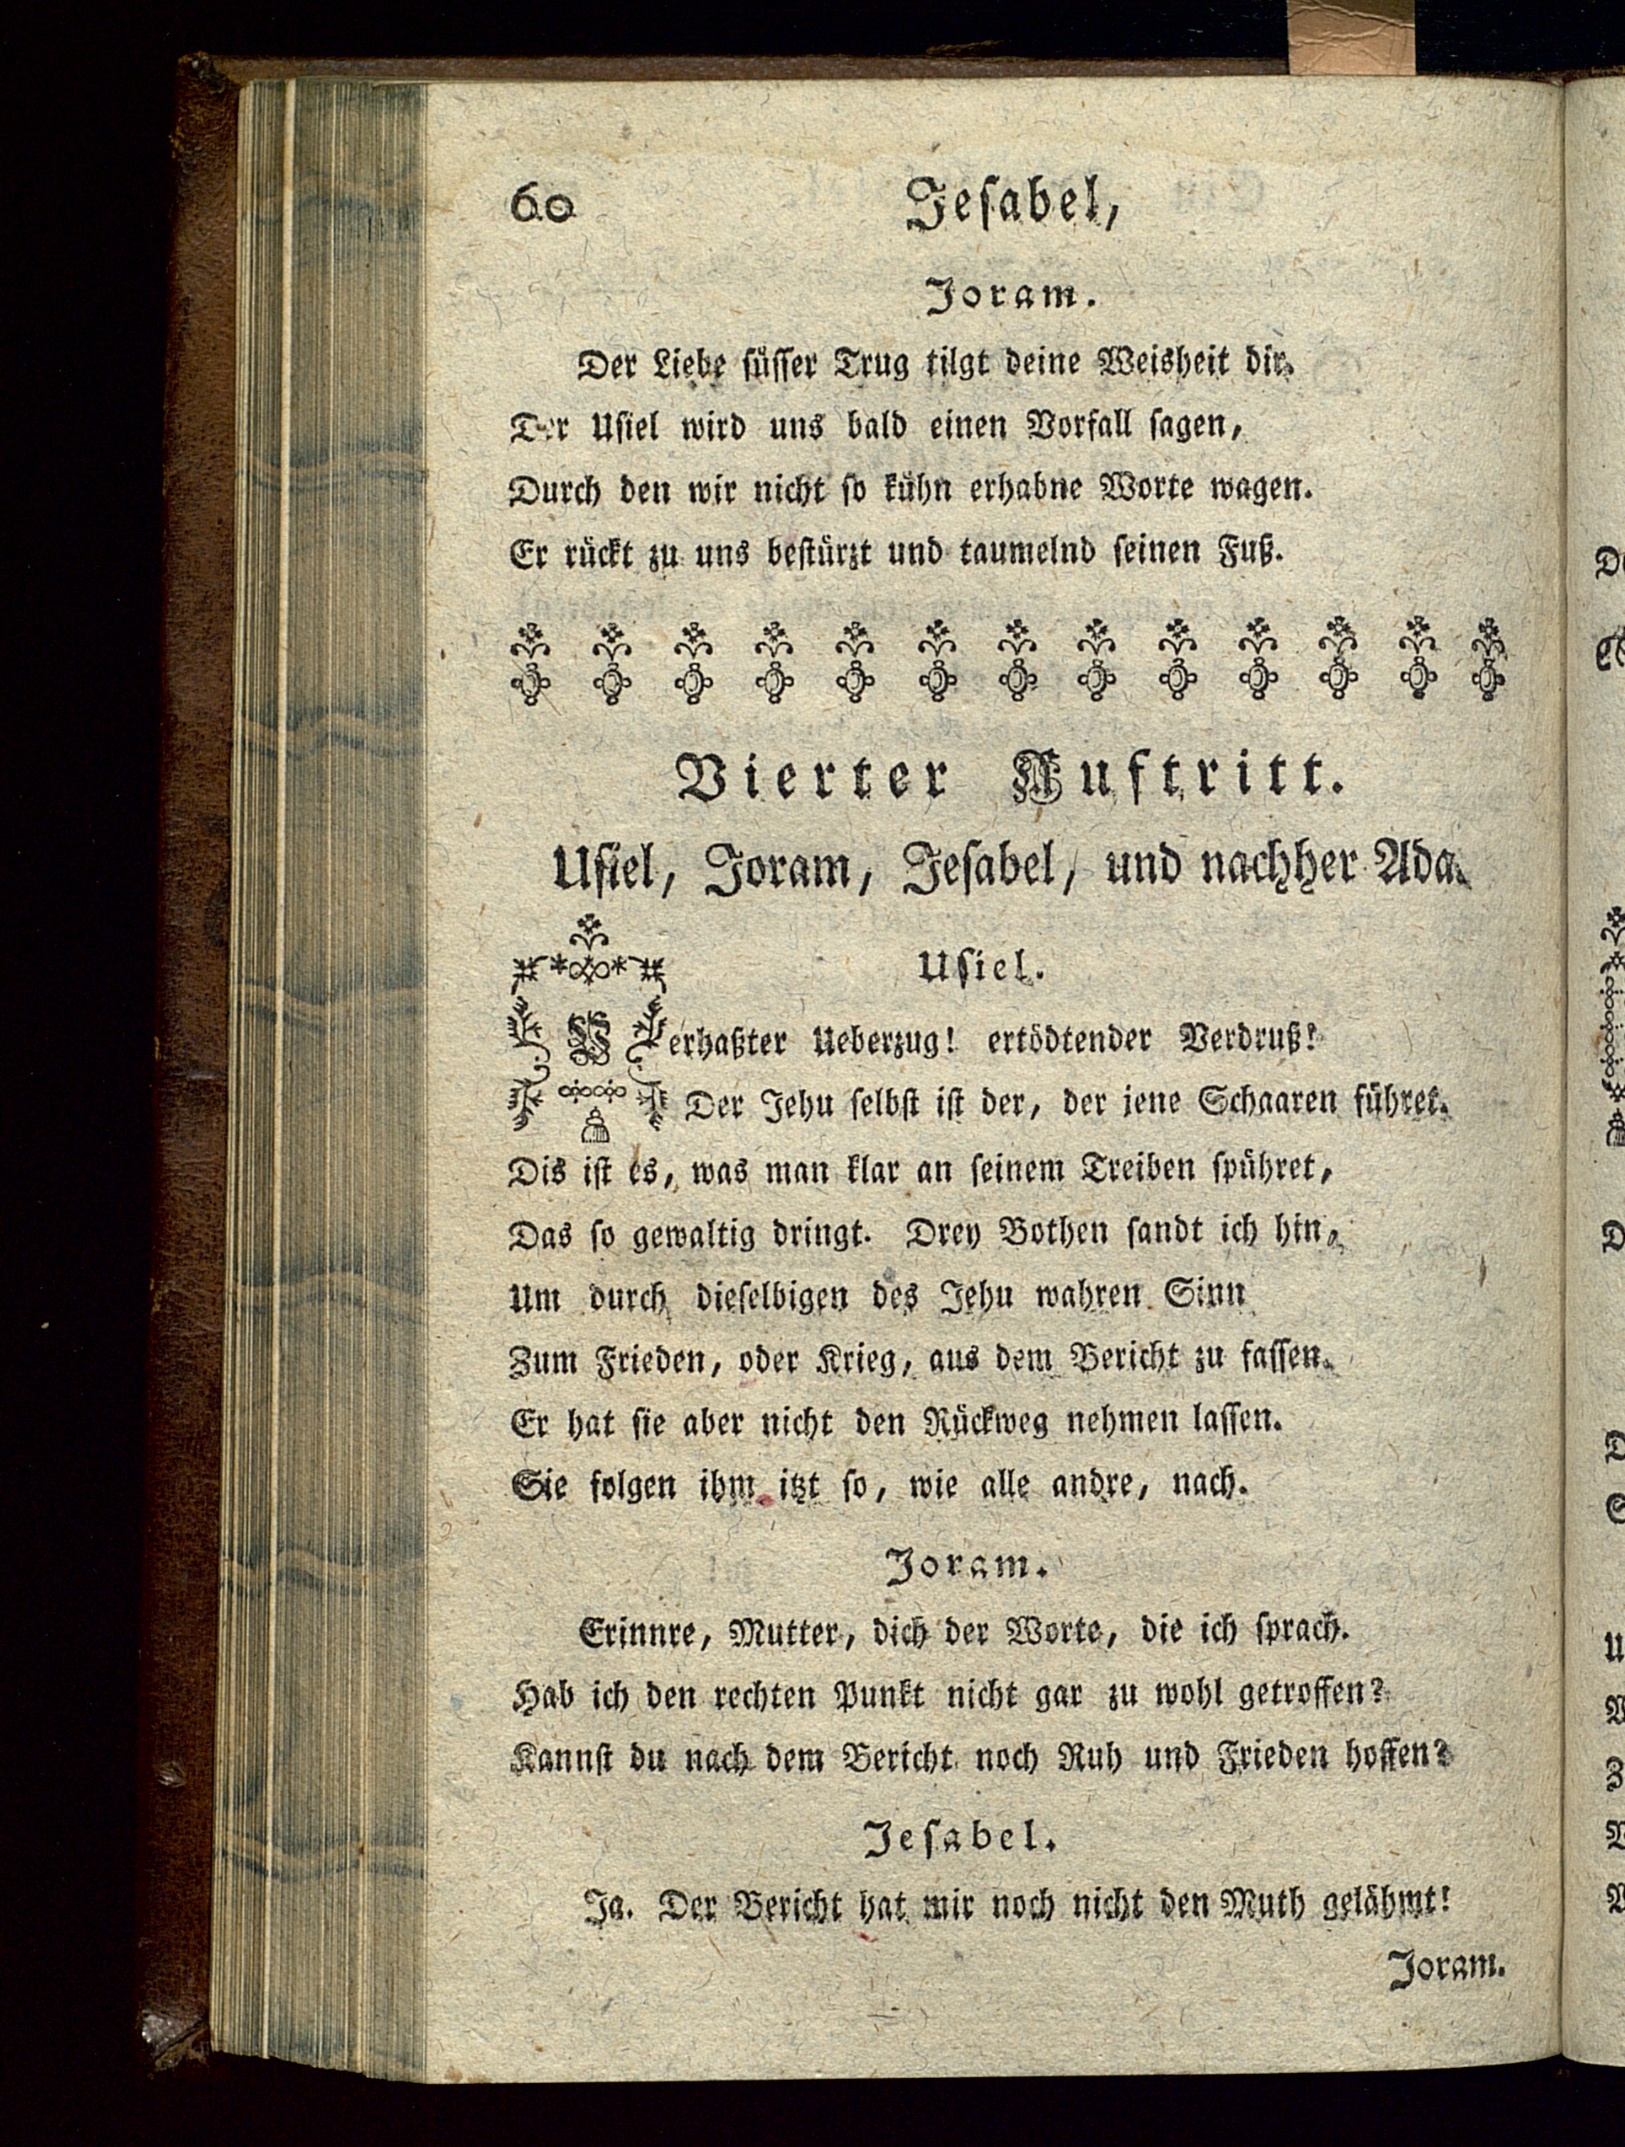 60 Jeſabel,
Joram.
Der Liebe ſüſſer Trug tilgt deine Weisheit dir.
Der Uſiel wird uns bald einen Vorfall ſagen,
Durch den wir nicht ſo kühn erhabne Worte wagen.
Er rückt zu uns beſtürzt und taumelnd ſeinen Fuß.
Vierter Auftritt.
Uſiel, Joram, Jeſabel, und nachher Ada.
Uſiel.
Verhaßter Ueberzug! ertödtender Verdruß!
Der Jehu ſelbſt iſt der, der jene Schaaren führet.
Dis iſt es, was man klar an ſeinem Treiben ſpühret,
Das ſo gewaltig dringt. Drey Bothen ſandt ich hin,
Um durch dieſelbigen des Jehu wahren Sinn
Zum Frieden, oder Krieg, aus dem Bericht zu faſſen.
Er hat ſie aber nicht den Rückweg nehmen laſſen.
Sie folgen ihm itzt ſo, wie alle andre, nach.
Joram.
Erinnre, Mutter, dich der Worte, die ich ſprach.
Hab ich den rechten Punkt nicht gar zu wohl getroffen?
Kannſt du nach dem Bericht noch Ruh und Frieden hoffen?
Jeſabel.
Ja. Der Bericht hat mir noch nicht den Muth gelähmt!
Joram.